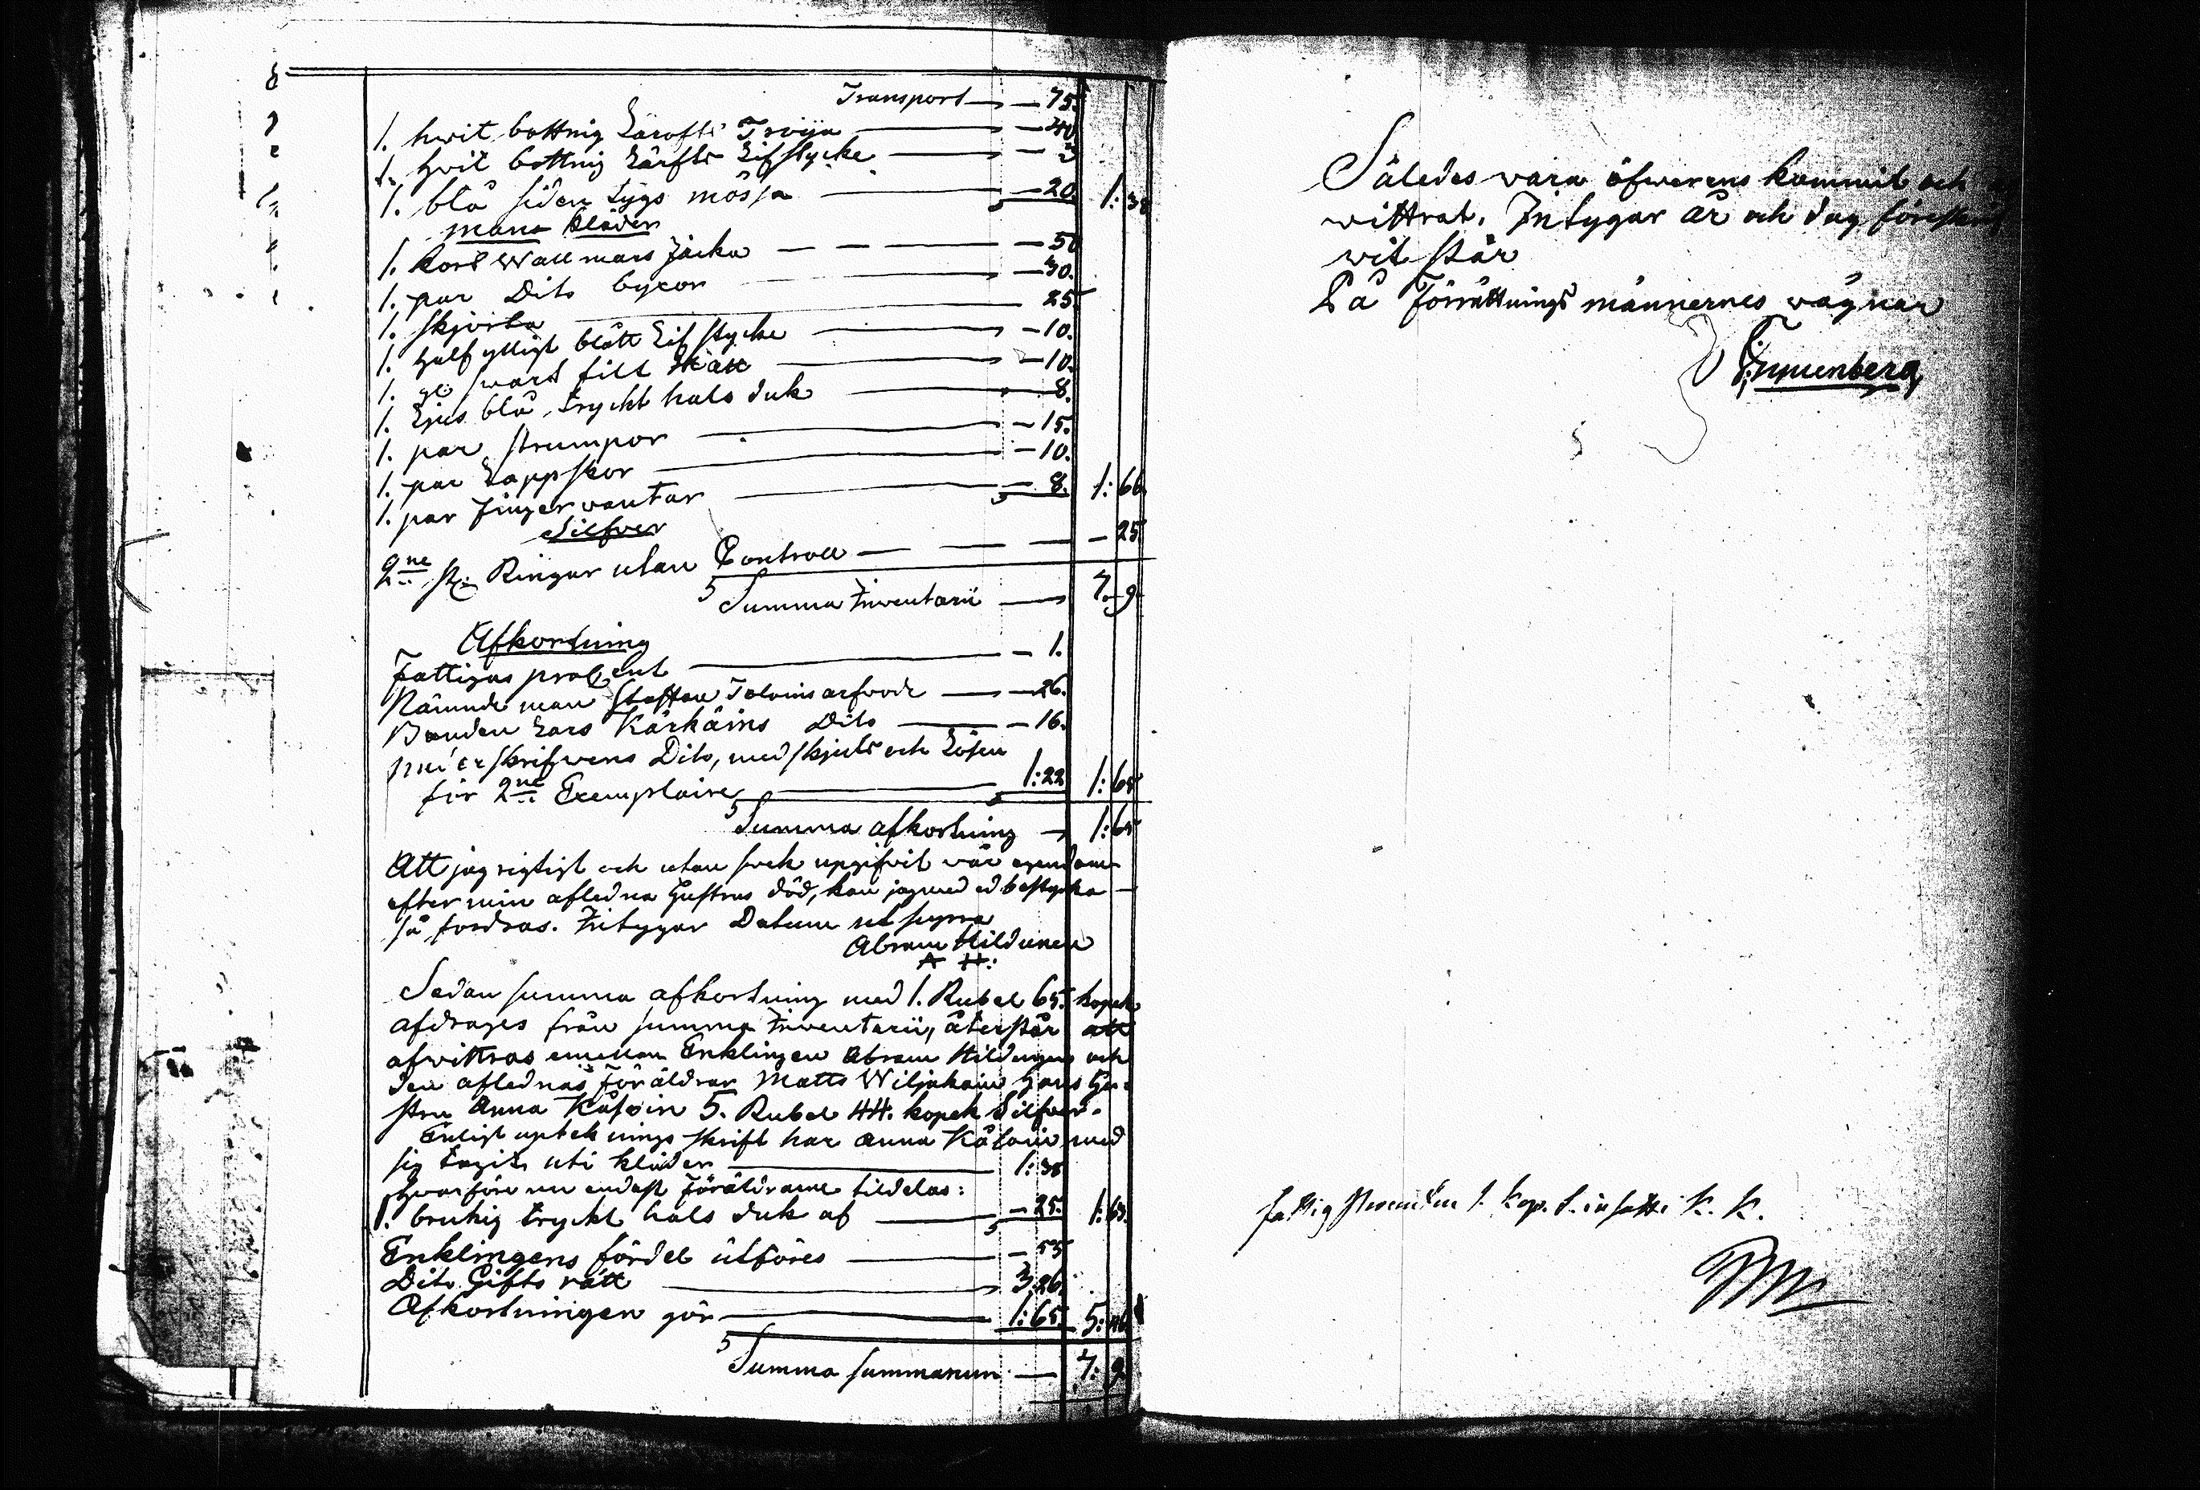 Transport — 75.
1. hwit bottnig Lärofts Tröija — 40
1. hvit bottnig Lärfts Lifstycke — 3
1. blå siden tygs mössa — 20. 1:38
mans kläder
1. kort Wallmars Jacka — 50
1. par Dito byxor — 30.
1. skjorta 25
1. halfylligt blått Lifstycke — 10.
1. gl swart filt Hatt — 10.
1. Ljus blå tryckt hals duk — 8.
1. par strumpor — 15.
1. par Lappskor — 10.
1. par Fingervantar — 8. 1:66.
Silfver
2ne st: Ringar utan Controll — 25
Summa Inventarii — 7. 9
Afkortning
Fattigas procent — 1.
Nämndeman Staffan arfvode — 26.
Bonden Lars Kärkäins Dito — 16.
skrifwens Dito, med skjuts och Lösen
för 2ne Exemplaire 1:22 1:65
Summa afkortning — 1:65
Att jag rigtigt och utan svek upgifvit vår egendom
efter min aflidna Hustrus död, kan jag med ed bestyrka
så fordras. Intygar Datum ut supra
Abram Hildunen
A H:
Sedan summa afkortning med 1. Rubel 65. kopek
afdrages från summa Inventarii, återstår att
afwittras emellan Enklingen Abram Hildunen och
den aflednas Föräldrar Matts Wiljakain hans Hu-
stru Anna 5. Rubel 44. kopek Silfver.
Enligt upteknings skrift har Anna med
sig tagit uti kläder — 1:38
hvarföre nu endast Föräldrarne tildelas:
1. brukig tryckt hals duk af — 25. 1:63.
Enklingens fördel utföres — 55
Dito Gifto rätt — 3:26.
Afkortningen gör — 1:65. 5:46
Summa summarum — 7. 9
Således vara öfwerens kommit och
wittrat. Intygar År och dag föreskrif
wit står
På Förrättnings männernes vägnar
fattig 1. kop. S. insatt i K. K.